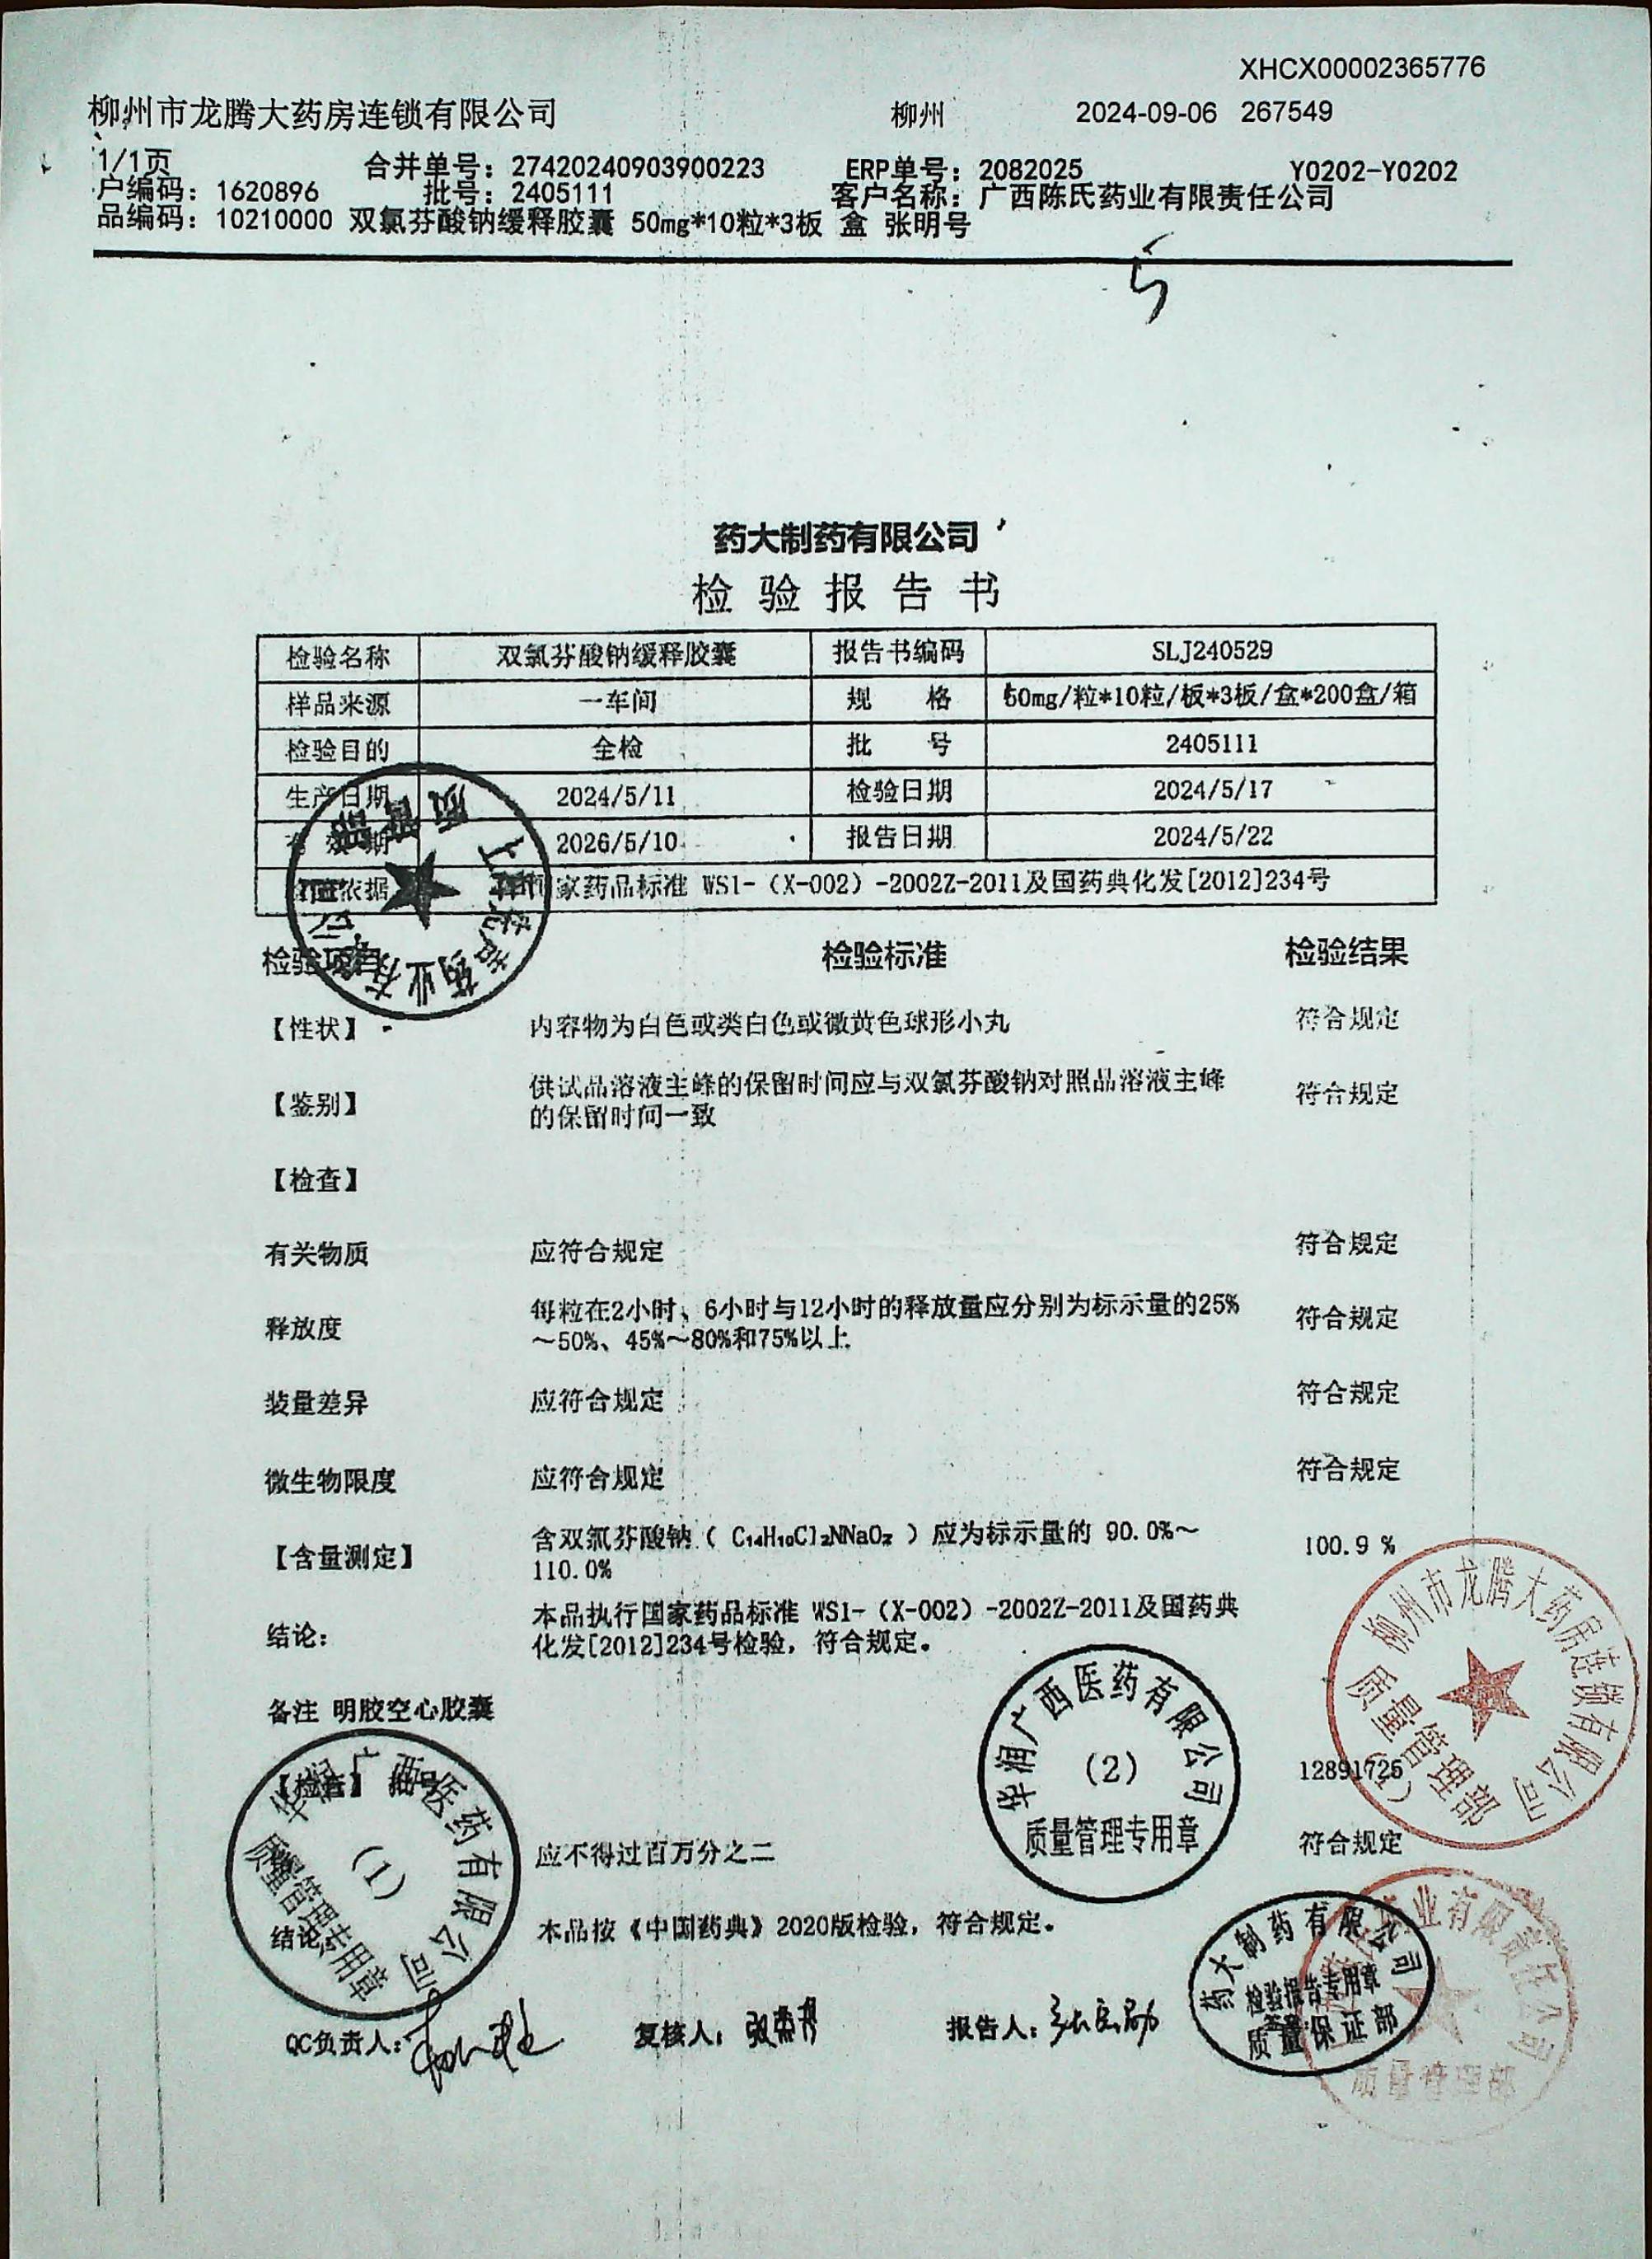 XHCX00002365776
柳州市龙腾大药房连锁有限公司 柳州 2024-09-06 267549
1/1页 合并单号：27420240903900223 ERP单号：2082025 Y0202-Y0202
户编码：1620896 批号：2405111 客户名称：广西陈氏药业有限责任公司
品编码：10210000 双氯芬酸钠缓释胶囊 50mg*10粒*3板 盒 张明号
药大制药有限公司
检验报告书
检验名称 双氯芬酸钠缓释胶囊 报告书编码 SLJ240529
样品来源 一车间 规 格 50mg/粒*10粒/板*3板/盒*200盒/箱
检验目的 全检 批 号 2405111
生产日期 2024/5/11 检验日期 2024/5/17
有效期 2026/5/10 报告日期 2024/5/22
依据 家药品标准 WS1-（X-002）-2002Z-2011及国药典化发[2012]234号
检验项目 检验标准 检验结果
【性状】 内容物为白色或类白色或微黄色球形小丸 符合规定
【鉴别】 供试品溶液主峰的保留时间应与双氯芬酸钠对照品溶液主峰 符合规定
的保留时间一致
【检查】
有关物质 应符合规定 符合规定
释放度 每粒在2小时、6小时与12小时的释放量应分别为标示量的25% 符合规定
～50%、45%～80%和75%以上
装量差异 应符合规定 符合规定
微生物限度 应符合规定 符合规定
【含量测定】 含双氯芬酸钠（ C₁₄H₁₀Cl₂NNaO₂ ）应为标示量的 90.0%～ 100.9 %
110.0%
结论： 本品执行国家药品标准 WS1-（X-002）-2002Z-2011及国药典
化发[2012]234号检验，符合规定。
备注 明胶空心胶囊
【检查】 批号 12891725
应不得过百万分之二 符合规定
结论 本品按《中国药典》2020版检验，符合规定。
QC负责人： 复核人： 报告人：
华润广西医药有限公司
（1）
质量管理专用章
华润广西医药有限公司
（2）
质量管理专用章
柳州市龙腾大药房连锁有限公司
质量管理部
药大制药有限公司
检验报告专用章
质量保证部
业有限责任公司
质量管理部